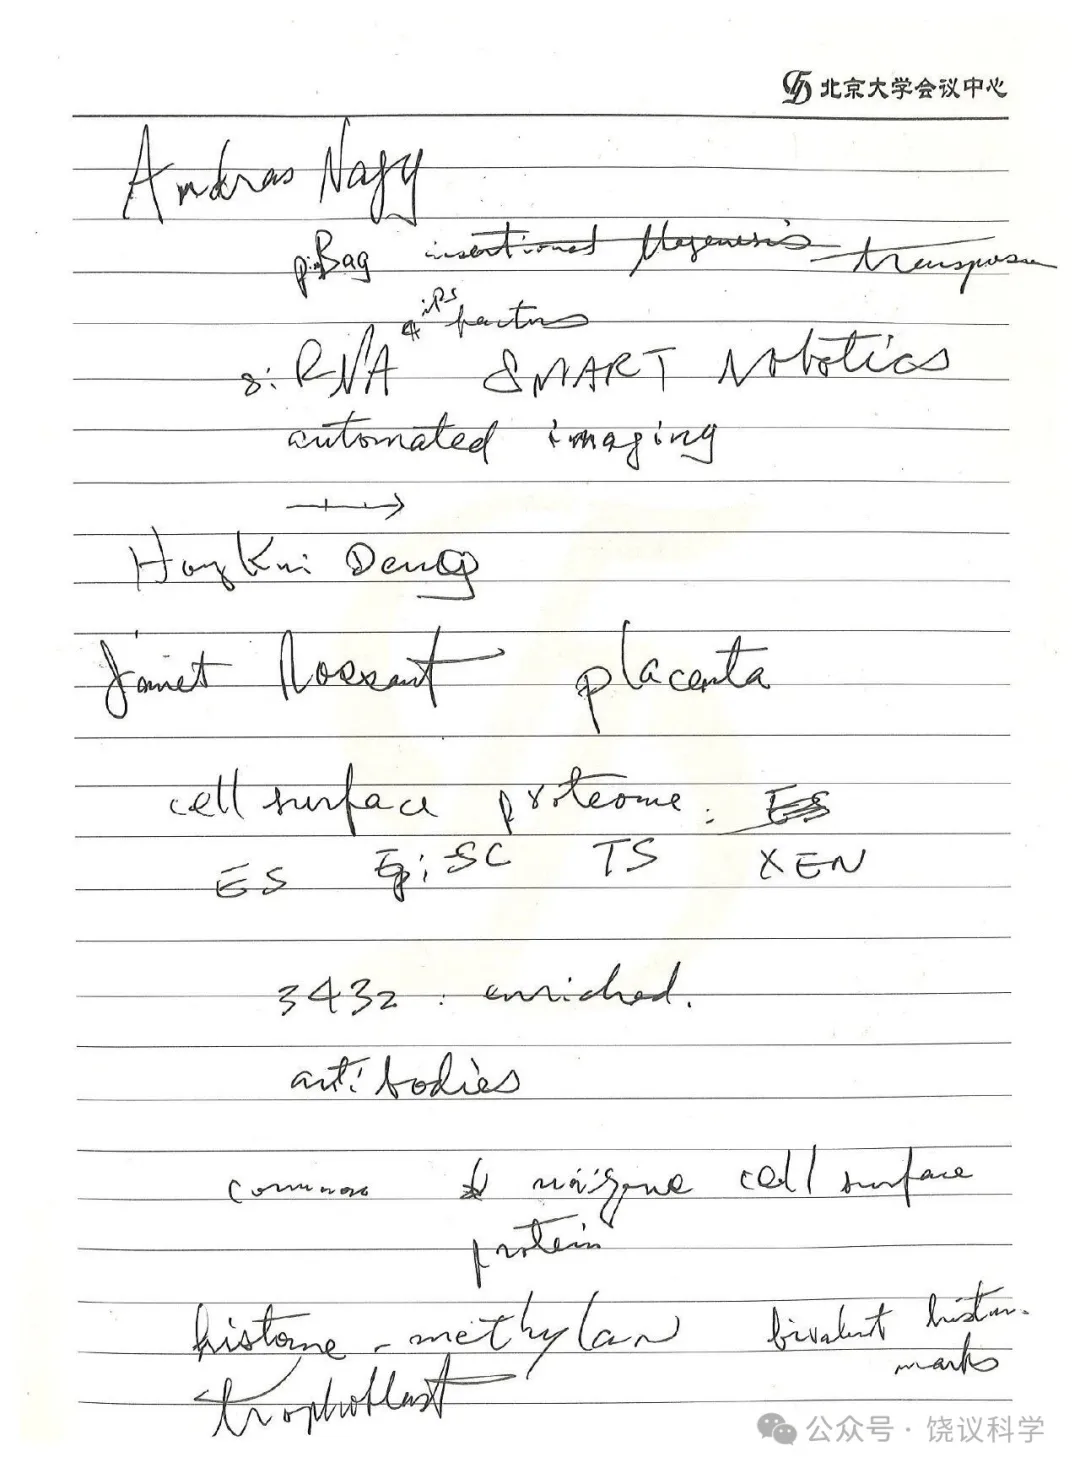 北京大学会议中心
Andras Nagy
piBag insertional Mugenesis transposon
4 iPS factors
siRNA SMART Robotics
automated imaging
HongKui Deng
Janet Rossant placenta
cell surface proteome: ES
ES EpiSC TS XEN
3432 : enriched.
antibodies
common & unique cell surface
protein
histone - methylan bivalent histon.
marks
trophoblast
公众号 · 饶议科学